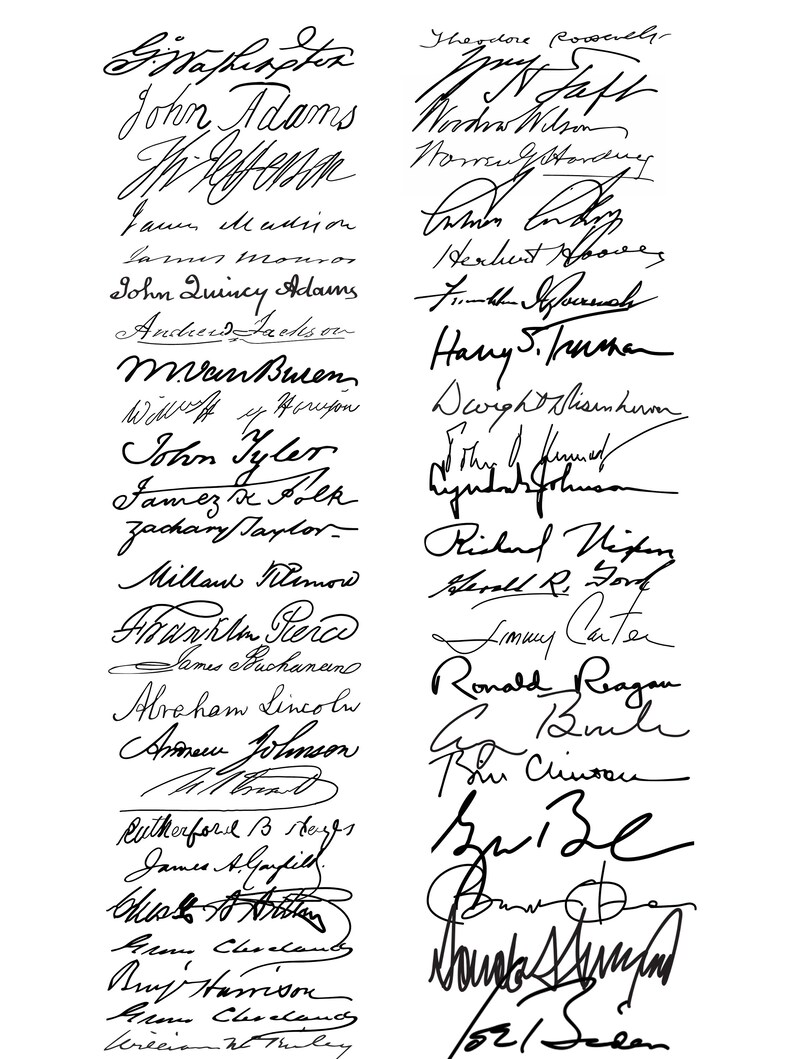 G. Washington
John Adams
Th. Jefferson
James Madison
James Monroe
John Quincy Adams
Andrew Jackson
M. Van Buren
W H Harrison
John Tyler
James K Polk
Zachary Taylor
Millard Fillmore
Franklin Pierce
James Buchanan
Abraham Lincoln
Andrew Johnson
U. S. Grant
Rutherford B Hayes
James A. Garfield.
Chester A Arthur
Grover Cleveland
Benj Harrison
Grover Cleveland
William McKinley
Theodore Roosevelt
Wm H Taft
Woodrow Wilson
Warren G Harding
Calvin Coolidge
Herbert Hoover
Franklin D Roosevelt
Harry S. Truman
Dwight D Eisenhower
John Kennedy
Lyndon B Johnson
Richard Nixon
Gerald R. Ford
Jimmy Carter
Ronald Reagan
G Bush
Bill Clinton
Barack Obama
Donald Trump
Joe Biden